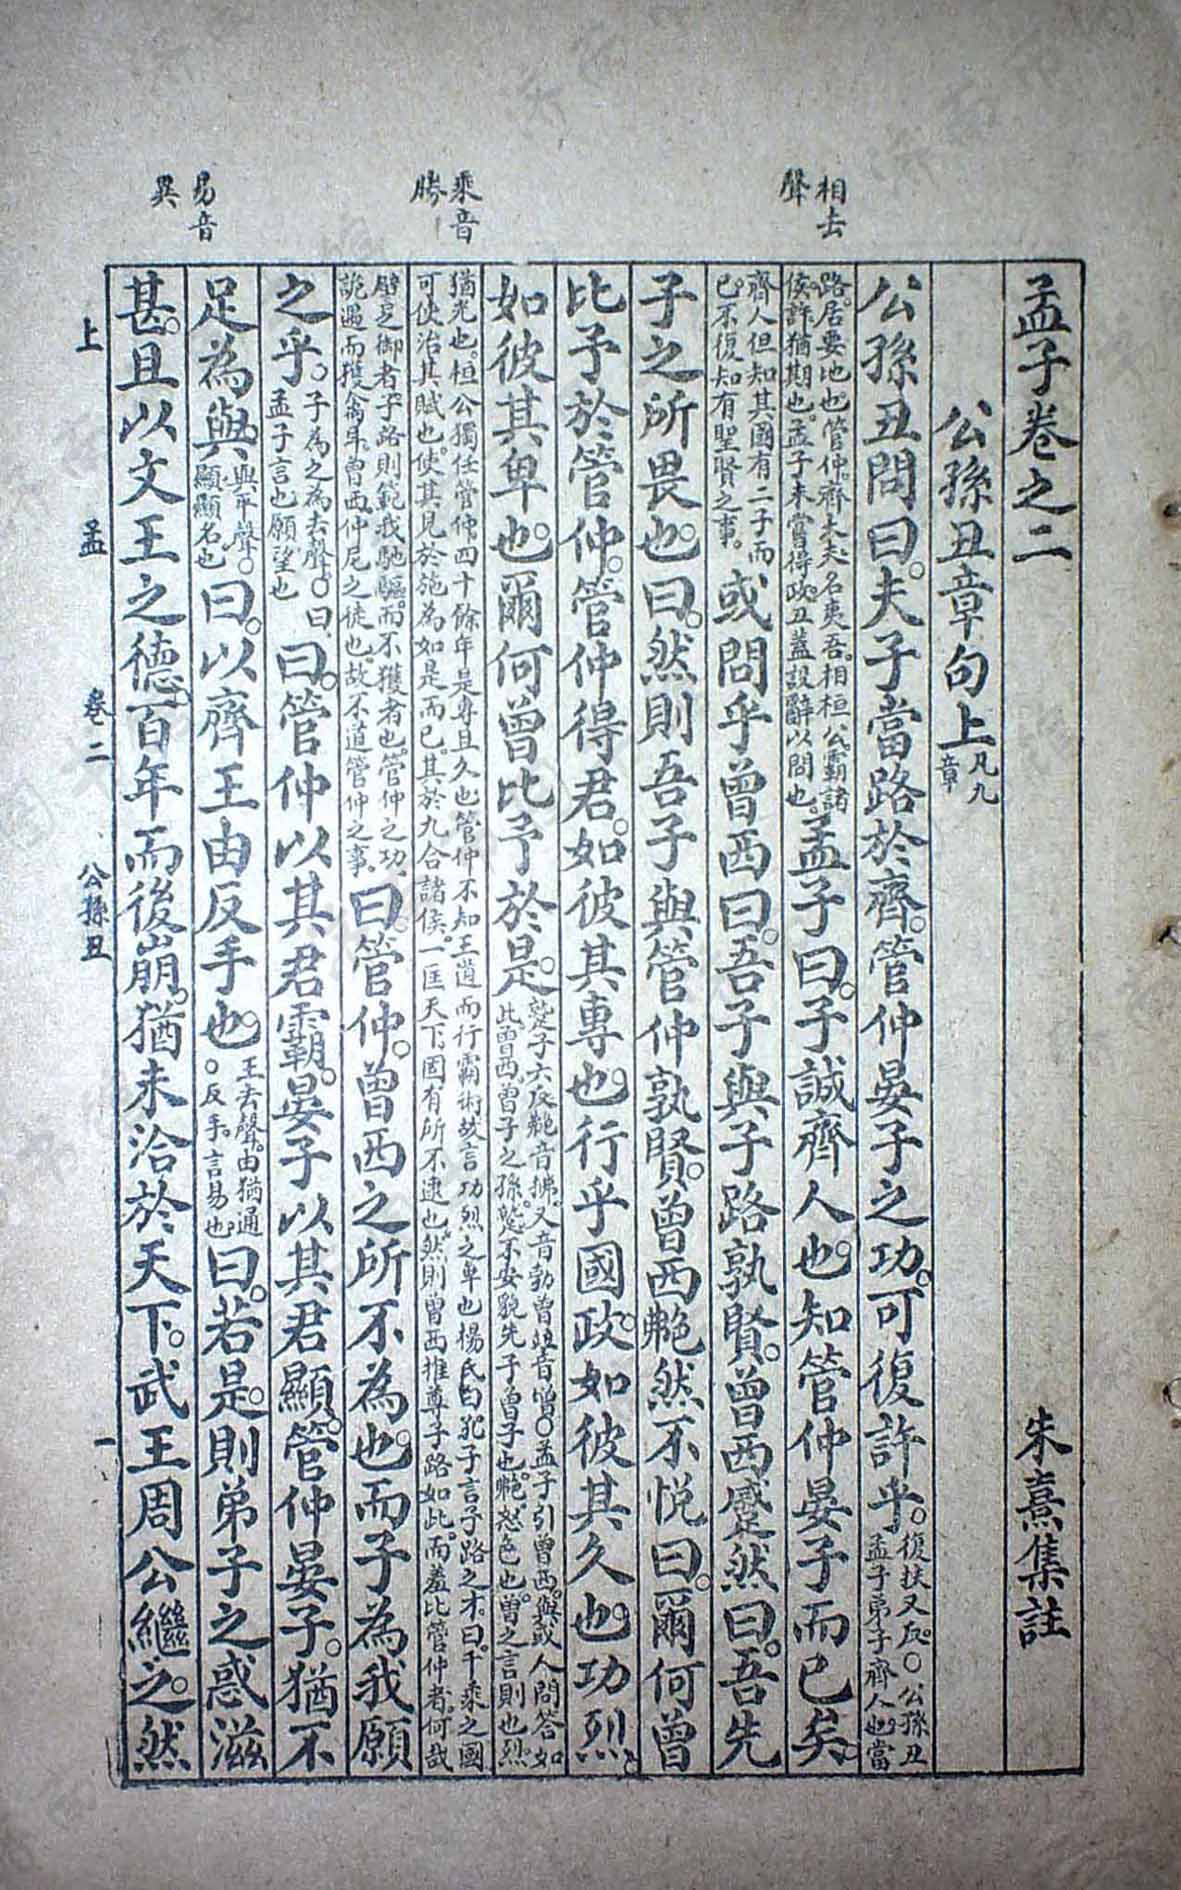 相去
聲
乘音
勝
易音
異
孟子卷之二 朱熹集註
公孫丑章句上凡九
章
公孫丑問曰夫子當路於齊管仲晏子之功可復許乎○復扶又反○公孫丑
孟子弟子齊人也當
路居要地也管仲齊大夫名夷吾相桓公霸諸
侯許猶期也孟子未嘗得政丑蓋設辭以問也孟子曰子誠齊人也知管仲晏子而已矣
齊人但知其國有二子而
已不復知有聖賢之事或問乎曾西曰吾子與子路孰賢曾西蹙然曰吾先
子之所畏也曰然則吾子與管仲孰賢曾西艴然不悅曰爾何曾
比予於管仲管仲得君如彼其專也行乎國政如彼其久也功烈
如彼其卑也爾何曾比予於是蹙子六反艴音拂又音勃曾並音增○孟子引曾西與或人問答如
此曾西曾子之孫蹙不安貌先子曾子也艴怒色也曾之言則也烈
猶光也桓公獨任管仲四十餘年是專且久也管仲不知王道而行霸術故言功烈之卑也楊氏曰孔子言子路之才曰千乘之國
可使治其賦也使其見於施為如是而已其於九合諸侯一匡天下固有所不逮也然則曾西推尊子路如此而羞比管仲者何哉
譬之御者子路則範我馳驅而不獲者也管仲之功
詭遇而獲禽耳曾西仲尼之徒也故不道管仲之事曰管仲曾西之所不為也而子為我願
之乎子為之為去聲○曰
孟子言也願望也曰管仲以其君霸晏子以其君顯管仲晏子猶不
足為與與平聲○
顯顯名也曰以齊王由反手也王去聲由猶通
○反手言易也曰若是則弟子之惑滋
甚且以文王之德百年而後崩猶未洽於天下武王周公繼之然
上 孟 卷二 公孫丑 一